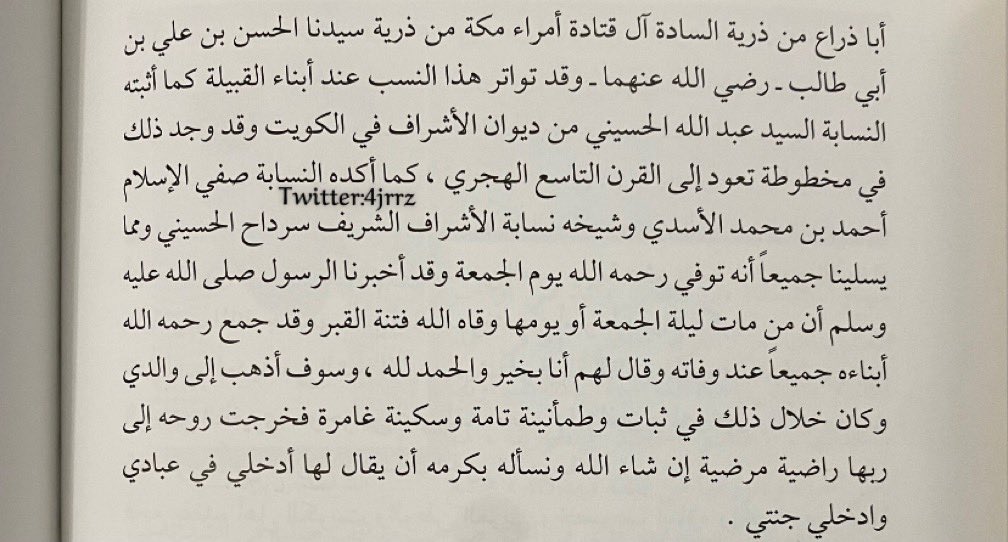 أبا ذراع من ذرية السادة آل قتادة أمراء مكة من ذرية سيدنا الحسن بن علي بن
أبي طالب ـ رضي الله عنهما ـ وقد تواتر هذا النسب عند أبناء القبيلة كما أثبته
النسابة السيد عبد الله الحسيني من ديوان الأشراف في الكويت وقد وجد ذلك
في مخطوطة تعود إلى القرن التاسع الهجري ، كما أكده النسابة صفي الإسلام
Twitter:4jrrz
أحمد بن محمد الأسدي وشيخه نسابة الأشراف الشريف سرداح الحسيني ومما
يسلينا جميعاً أنه توفي رحمه الله يوم الجمعة وقد أخبرنا الرسول صلى الله عليه
وسلم أن من مات ليلة الجمعة أو يومها وقاه الله فتنة القبر وقد جمع رحمه الله
أبناءه جميعاً عند وفاته وقال لهم أنا بخير والحمد لله ، وسوف أذهب إلى والدي
وكان خلال ذلك في ثبات وطمأنينة تامة وسكينة غامرة فخرجت روحه إلى
ربها راضية مرضية إن شاء الله ونسأله بكرمه أن يقال لها أدخلي في عبادي
وادخلي جنتي .